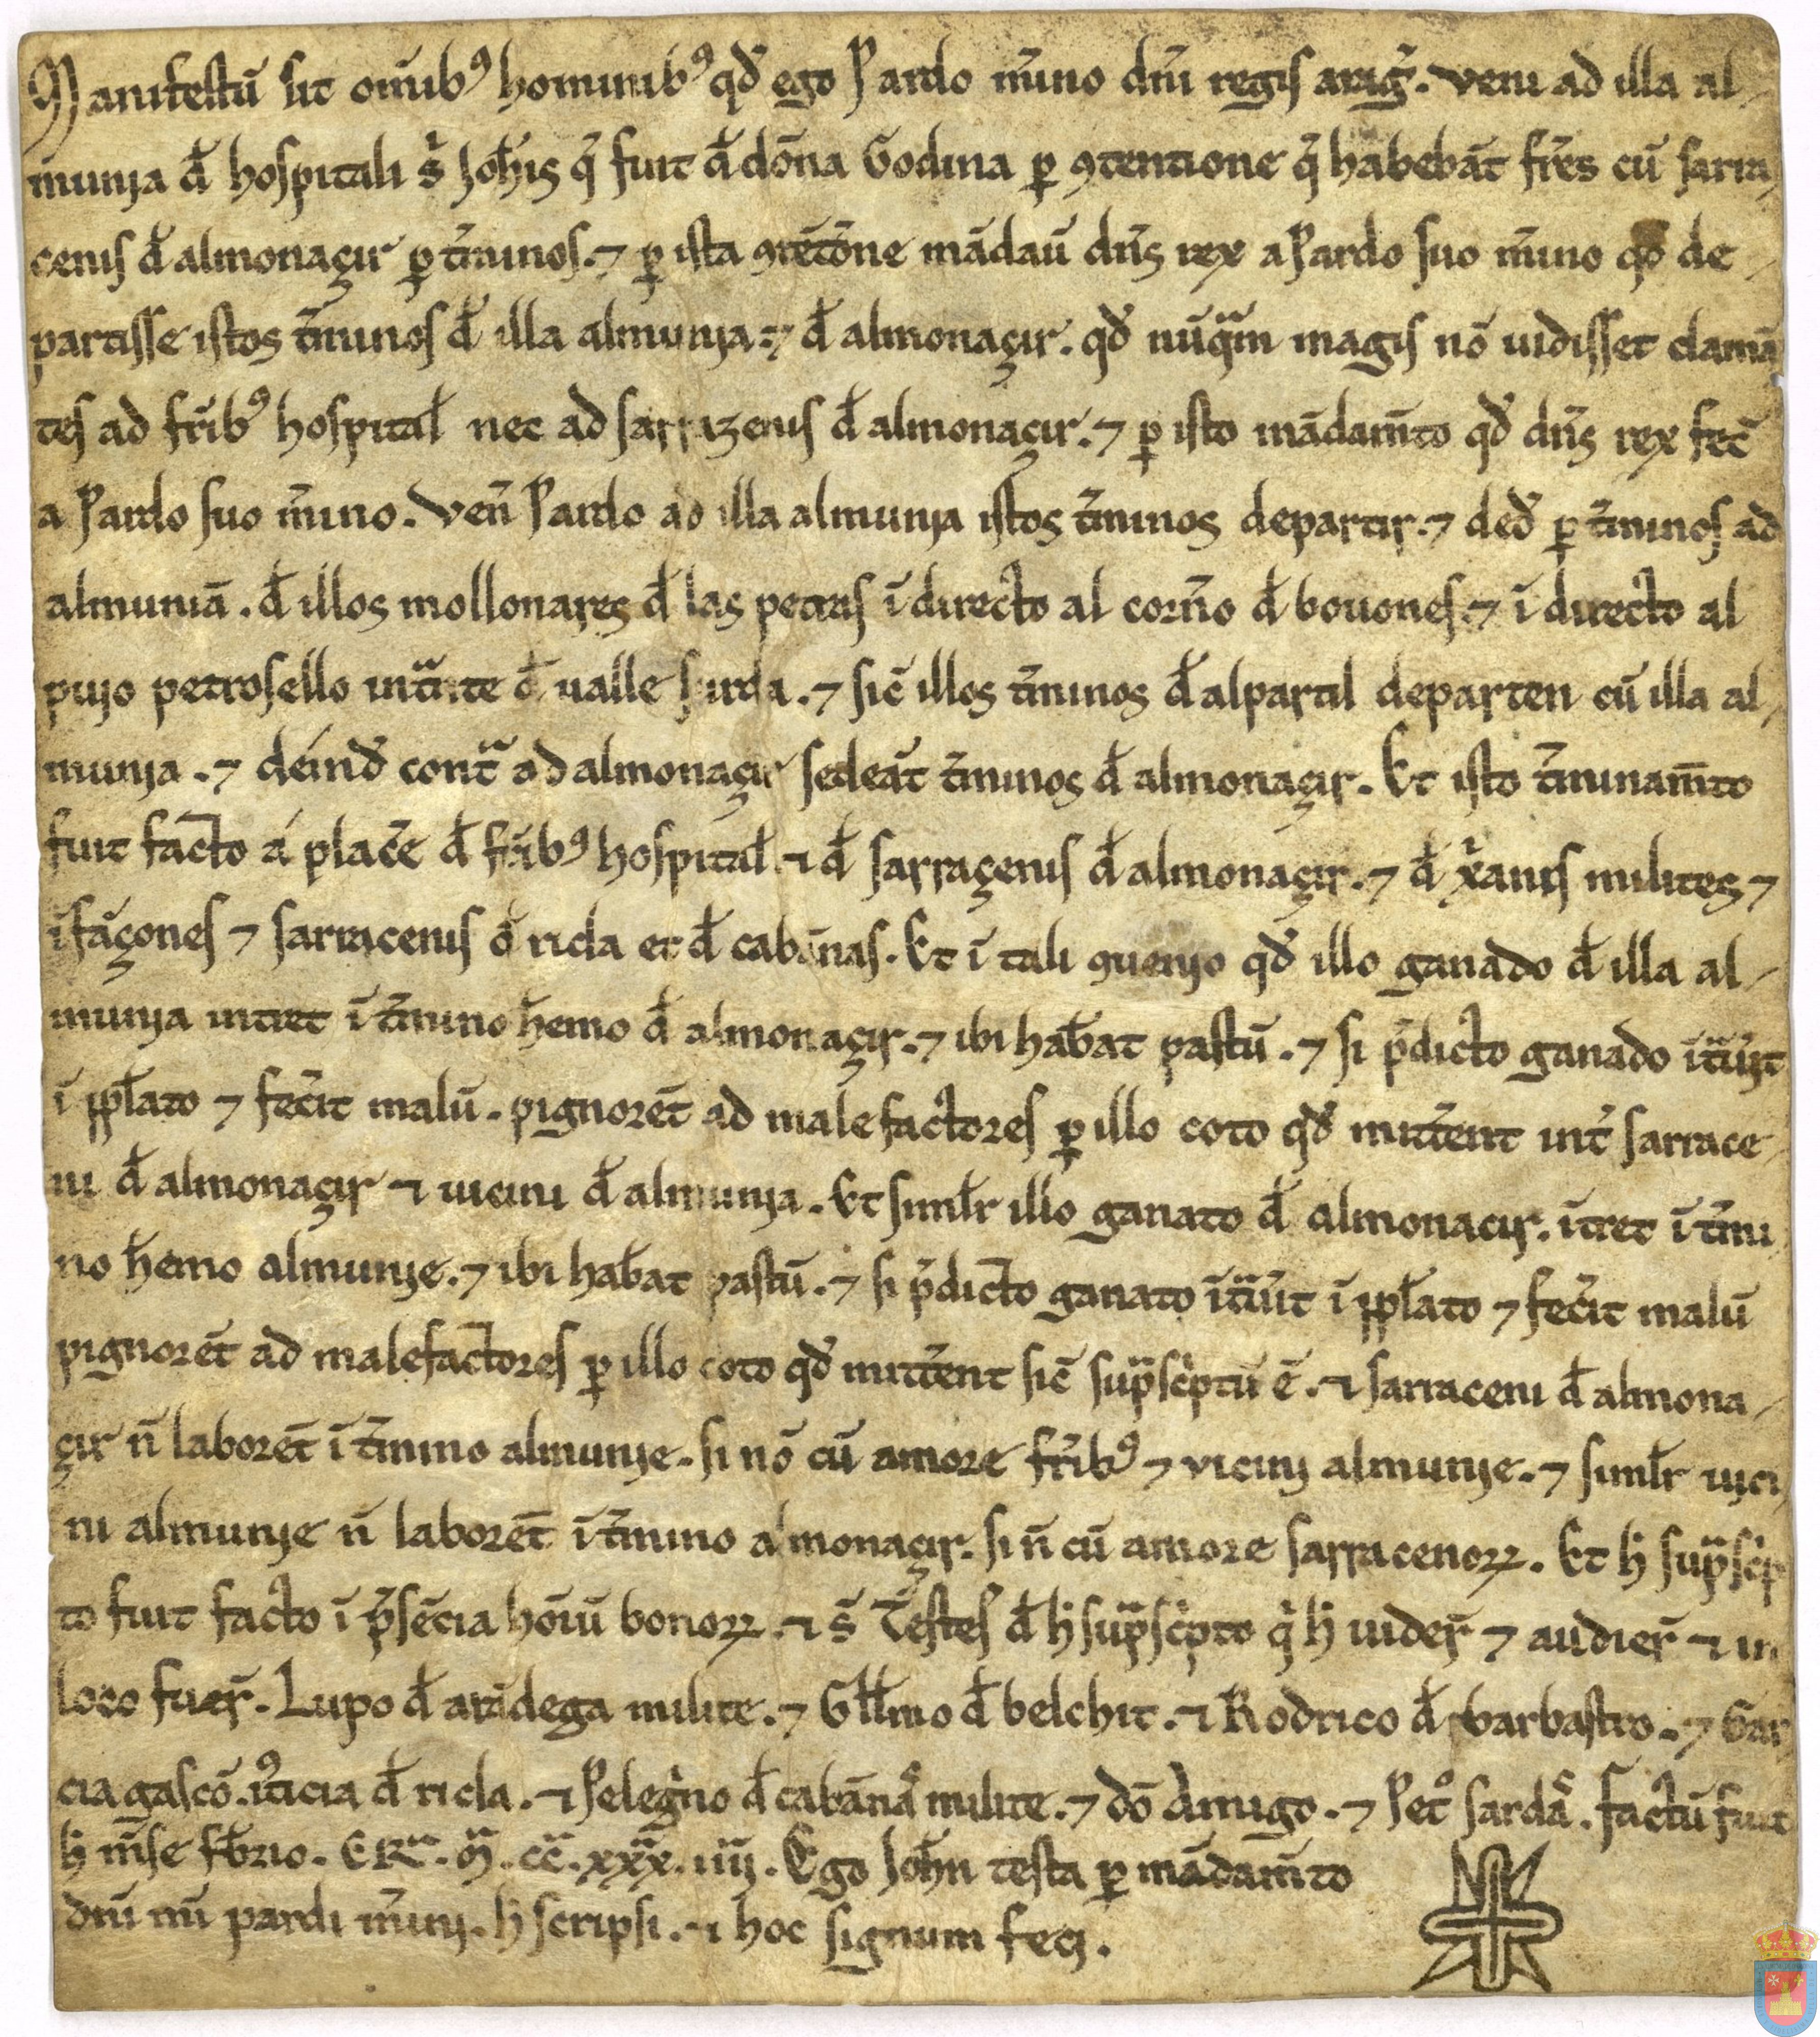 Manifestū sit om̄ibꝰ hominibꝰ qđ ego Pardo m̄ino dn̄i regis arag̃. Veni ad illa al-
munia đ hospitali s̃ Joh̃is q̃ fuit đ dōna Godina ꝑ ꝯtentione q̃ habebāt fr̃es cū sarra-
cenis đ almonaçir ꝑ t̃minos. ⁊ ꝑ ista ꝯtētōne mādaū dn̄s rex a Pardo suo m̃ino qđ de-
partisse istos t̃minos đ illa almunia. ⁊ đ almonaçir. qđ nūq̃m magis nō uidisset clamā
tes ad fr̃ibꝰ hospitał nec ad sarrazenis đ almonaçir. ⁊ ꝑ isto mādam̄to qđ dn̄s rex fec̃
a Pardo suo m̃ino. Ven̄ Pardo ad illa almunia istos t̃minos departir. ⁊ ded̃ ꝑ t̃minos ad
almuniā. đ illos mollonares đ las petras ī directo al corn̄o đ bouones. ⁊ ī directo al
puio petrosello int̃nte đ ualle surda. ⁊ sic̄ illos t̃minos đ alpartil departen cū illa al-
munia. ⁊ deinđ cont̃ ad almonaçir sedeāt t̃minos đ almonaçir. Et isto t̃minam̄to
fuit facto a plac̃e đ fr̃ibꝰ hospitał ⁊ đ sarraçenis đ almonaçir. ⁊ đ xānis milites ⁊
īfāçones ⁊ sarracenis đ ricla et đ cabānas. Et ī tali ꝯuenio qđ illo ganado đ illa al-
munia intret ī t̃mino h̃emo đ almonaçir. ⁊ ibi hab̃at pastū. ⁊ si p̃dicto ganado īt̃ũit
ī ꝑlato ⁊ fec̃it malū. pignorēt ad malefactores ꝑ illo coto qđ mitt̃ent int̃ sarrace-
ni đ almonaçir ⁊ uicini đ almunia. Et simlr̃ illo ganato đ almonacir. ītret ī t̃mi
no h̃emo almunie. ⁊ ibi hab̃at pastū. ⁊ si p̃dicto ganato īt̃ũit ī ꝑlato ⁊ fec̃it malū
pignorēt ad malefactores ꝑ illo coto qđ mitt̃ent sic̄ sup̃sc̃ptū ē. ⁊ sarraceni đ almona-
çir n̄ laborēt ī t̃mino almunie. si nō cū amore fr̃ibꝰ ⁊ vicinj almunie. ⁊ simlr̃ uici
ni almunie n̄ laborēt ī t̃mino almonaçir. si n̄ cū amore sarracenoꝝ. Et h̃ sup̃sc̃p
to fuit facto ī p̃sēcia hōiū bonoꝝ. ⁊ s̃ Testes đ h̃ sup̃sc̃pto q̃ h̃ uider̃ ⁊ audier̃ ⁊ in
loco fuer̃. Lupo đ arādega milite. ⁊ Głłmo đ belchit. ⁊ Rodrico đ barbastro. ⁊ Gar
cia gascō. iꝰticia đ ricla. ⁊ Peleg̃no đ cabānas milite. ⁊ dō đmigo. ⁊ Pet° sardas. factū fuit
h̃ m̄se fb̃rio. ERᵃ. Mᵃ. CCᵃ. xxxᵃ. iiij. Ego Joh̃n testa ꝑ mādam̄to
dn̄i mī pardi m̃inj. h̃ scripsi. ⁊ hoc signum fecj.